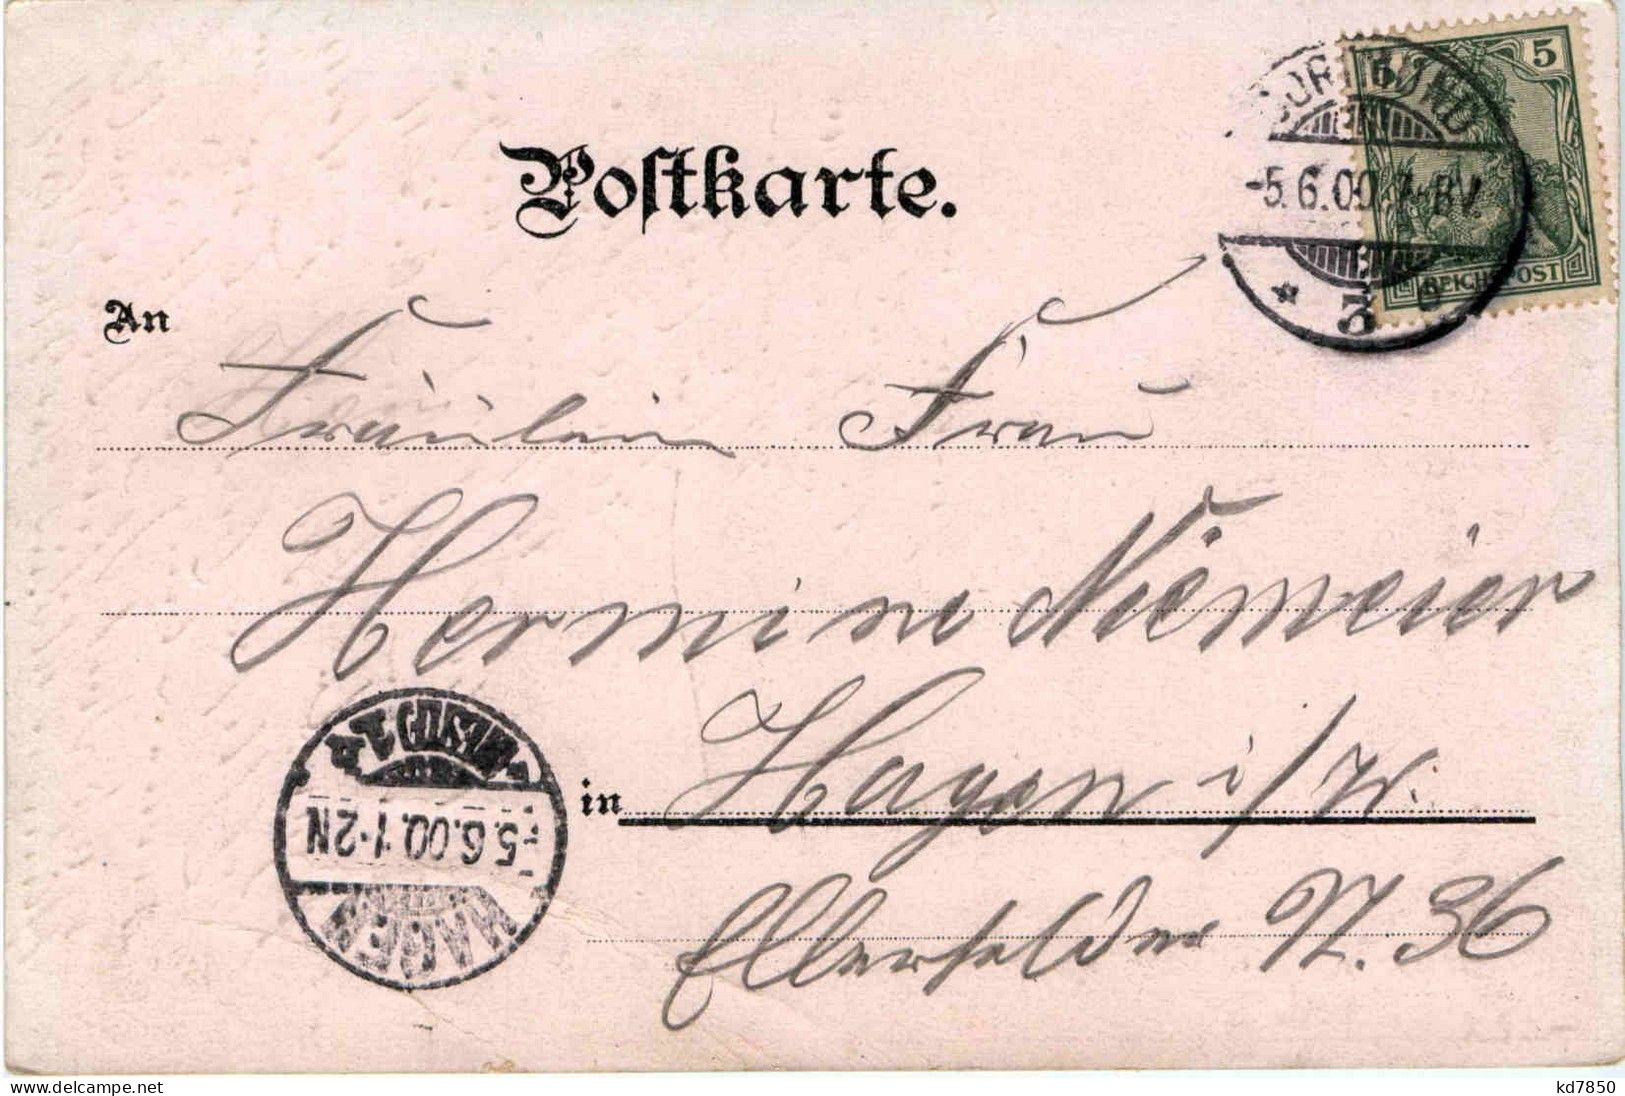 Postkarte.
5
DORTMUND
-5.6.00.7-8V.
* 3 b
REICHSPOST
An
Fräulein Frau
Hermine Niemeier
in Hagen i/W.
Elberfelder N. 36
HAGEN
5.6.00.1-2N
(WESTF.) 1
www.delcampe.net
kd7850